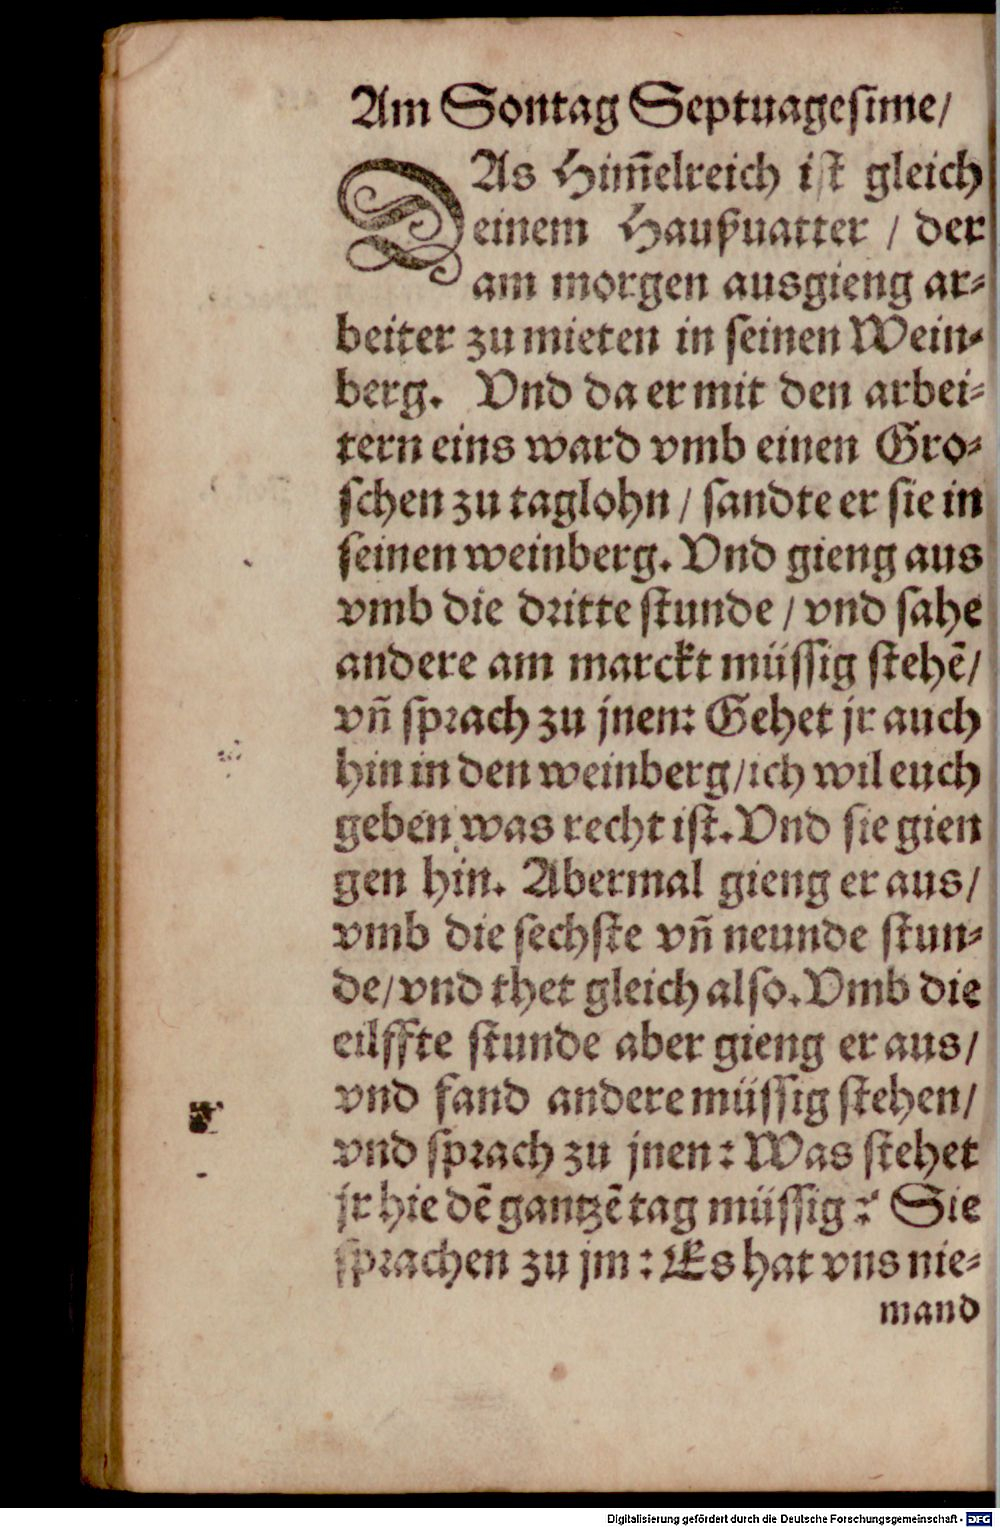 Am Sontag Septuagesime/
DAs Him̄elreich ist gleich
einem Haußuatter / der
am morgen ausgieng ar⸗
beiter zu mieten in seinen Wein⸗
berg. Vnd da er mit den arbei⸗
tern eins ward vmb einen Gro⸗
schen zu taglohn / sandte er sie in
seinen weinberg. Vnd gieng aus
vmb die dritte stunde / vnd sahe
andere am marckt müssig stehē/
vn̄ sprach zu jnen: Gehet jr auch
hin in den weinberg/ich wil euch
geben was recht ist. Vnd sie gien
gen hin. Abermal gieng er aus/
vmb die sechste vn̄ neunde stun⸗
de/vnd thet gleich also. Vmb die
eilffte stunde aber gieng er aus/
vnd fand andere müssig stehen/
vnd sprach zu jnen: Was stehet
jr hie dē gantzē tag müssig? Sie
sprachen zu jm: Es hat vns nie⸗
mand
Digitalisierung gefördert durch die Deutsche Forschungsgemeinschaft - DFG